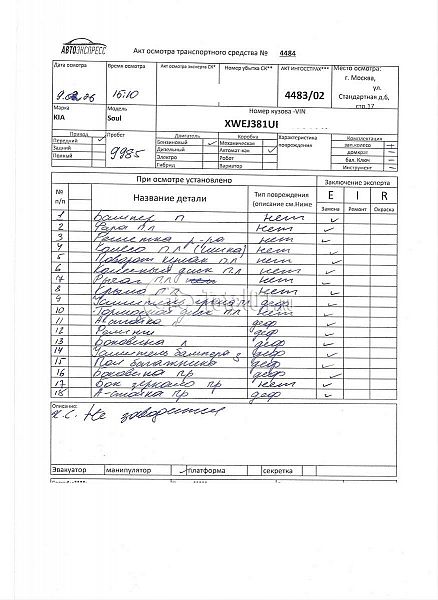 АВТОЭКСПРЕСС
Акт осмотра транспортного средства № 4484
Дата осмотра
Время осмотра
Акт осмотра эксперта СК*
Номер убытка СК**
АКТ ИНГОССТРАХ***
Место осмотра:
г. Москва,
ул.
Стандартная д.6,
стр.17
16:10
4483/02
Марка
Модель
Номер кузова -VIN
KIA
Soul
XWEJ381UI
Привод
Пробег
Двигатель
Коробка
Характеристика повреждения
Комплектация
Передний
9985
Бензиновый
Механическая
зап.колесо
Задний
Дизельный
Автомат-кая
домкрат
Полный
Электро
Робот
бал. Ключ
Гибрид
Вариатор
Инструмент
При осмотре установлено
Заключение эксперта
№ п/п
Название детали
Тип повреждения (описание см.Ниже
E I R
Замена Ремонт Окраска
1 Бампер п нет
2 Фара п л нет
3 Решетка р-ра нет
4 Колесо п л (шина) нет
5 Поворот кулак п л нет
6 Колесный диск п л нет
7 Рычаг п л нет
8 Крыло п л нет
9 деф
10 Тормозной диск п л нет
11 А-стойка л деф
12 деф
13 Боковина л деф
14 Усилитель бампера з деф
15 Пол багажника деф
16 Боковина пр деф
17 Бок зеркало пр нет
18 А-стойка пр деф
Описание:
Не заводится
Эвакуатор манипулятор платформа секретка